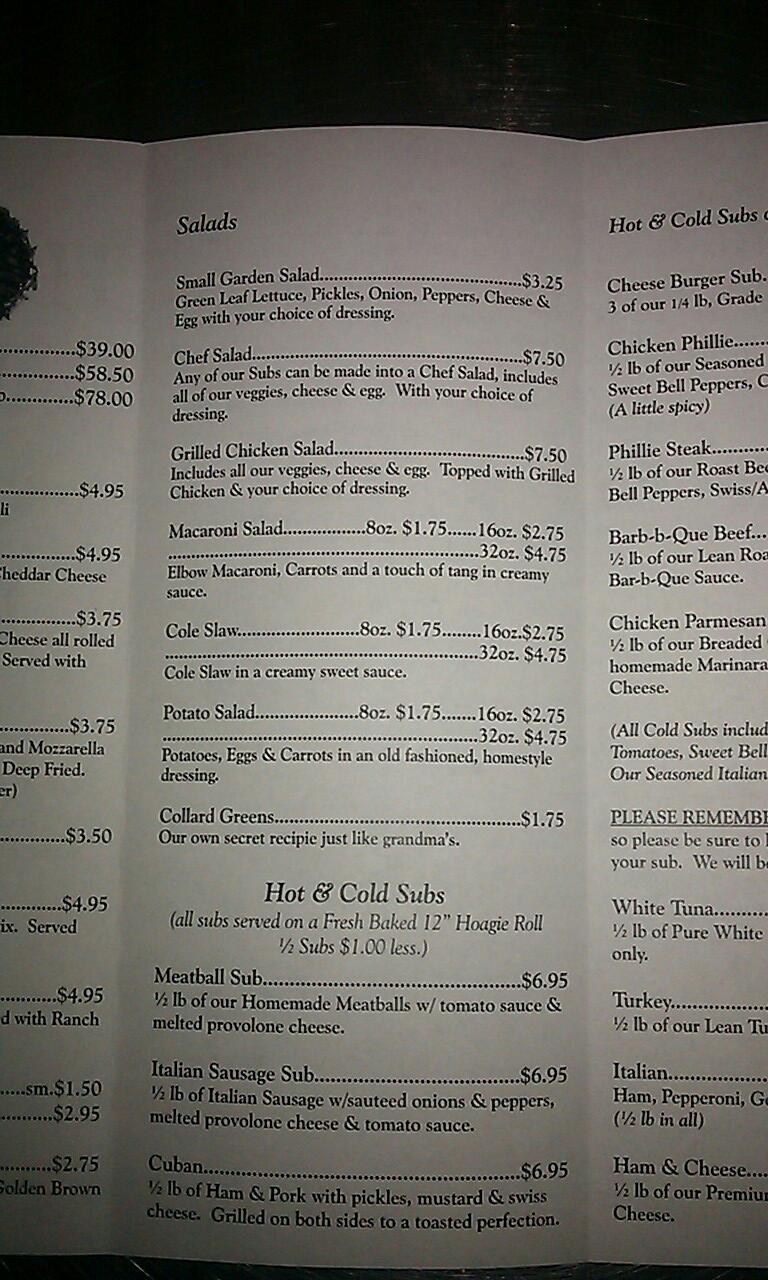 $39.00
$58.50
$78.00
$4.95
$4.95
Cheddar Cheese
$3.75
Cheese all rolled
Served with
$3.75
and Mozzarella
Deep Fried.
$3.50
$4.95
Served
$4.95
with Ranch
sm.$1.50
$2.95
$2.75
Golden Brown
Salads
Small Garden Salad..............................................$3.25
Green Leaf Lettuce, Pickles, Onion, Peppers, Cheese &
Egg with your choice of dressing.
Chef Salad............................................................$7.50
Any of our Subs can be made into a Chef Salad, includes
all of our veggies, cheese & egg. With your choice of
dressing.
Grilled Chicken Salad..........................................$7.50
Includes all our veggies, cheese & egg. Topped with Grilled
Chicken & your choice of dressing.
Macaroni Salad..................8oz. $1.75......16oz. $2.75
.....................................................................32oz. $4.75
Elbow Macaroni, Carrots and a touch of tang in creamy
sauce.
Cole Slaw...........................8oz. $1.75........16oz.$2.75
.....................................................................32oz. $4.75
Cole Slaw in a creamy sweet sauce.
Potato Salad.......................8oz. $1.75.......16oz. $2.75
.....................................................................32oz. $4.75
Potatoes, Eggs & Carrots in an old fashioned, homestyle
dressing.
Collard Greens......................................................$1.75
Our own secret recipie just like grandma's.
Hot & Cold Subs
(all subs served on a Fresh Baked 12" Hoagie Roll
½ Subs $1.00 less.)
Meatball Sub..........................................................$6.95
½ lb of our Homemade Meatballs w/ tomato sauce &
melted provolone cheese.
Italian Sausage Sub...............................................$6.95
½ lb of Italian Sausage w/sauteed onions & peppers,
melted provolone cheese & tomato sauce.
Cuban.....................................................................$6.95
½ lb of Ham & Pork with pickles, mustard & swiss
cheese. Grilled on both sides to a toasted perfection.
Hot & Cold Subs
Cheese Burger Sub.
3 of our 1/4 lb, Grade
Chicken Phillie......
½ lb of our Seasoned
Sweet Bell Peppers,
(A little spicy)
Phillie Steak..........
½ lb of our Roast
Bell Peppers, Swiss/
Barb-b-Que Beef...
½ lb of our Lean
Bar-b-Que Sauce.
Chicken Parmesan
½ lb of our Breaded
homemade Marinara
Cheese.
(All Cold Subs
Tomatoes, Sweet Bell
Our Seasoned Italian
PLEASE
so please be sure to
your sub. We will
White Tuna.........
½ lb of Pure White
only.
Turkey................
½ lb of our Lean
Italian.................
Ham, Pepperoni,
(½ lb in all)
Ham & Cheese....
½ lb of our
Cheese.